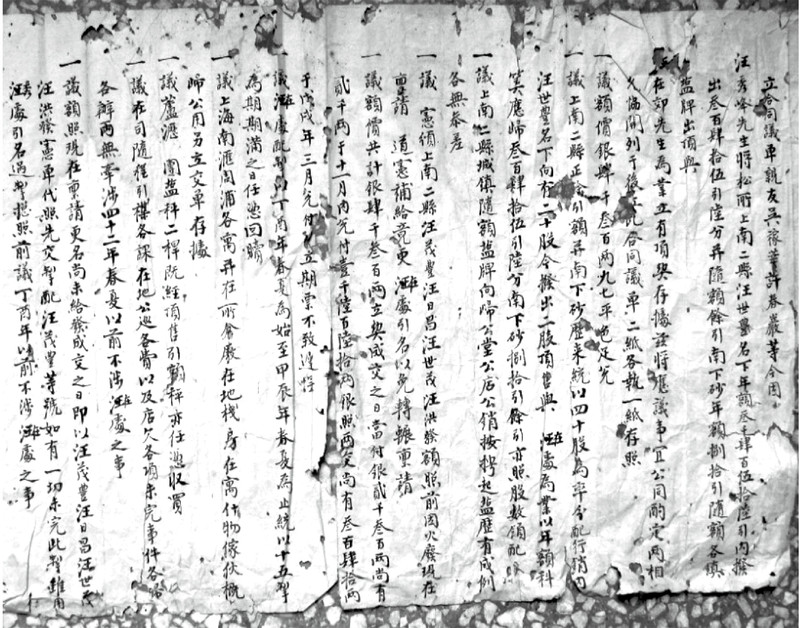 立合同議單親友吳稼葦許春嚴等今因
汪秀峰先生將松所上南二縣汪世豐名下年額叁千肆百伍拾陸引內撥
出叁百肆拾伍引陸分并隨額餘引南下砂年額捌拾引隨額各鎮
鹽牌出頂與
在郊先生為業立有頂契存據茲將憑議事宜公同酌定兩相
允協開列于後立此合同議單二紙各執一紙存照
一議額價銀肆千叁百兩九七平色足兌
一議上南二縣正餘引額并南下砂歷來統以四十股為率分配行銷內
汪世豐名下向有二十股今撥出二股頂售與 汪處為業以年額科
算應歸叁百肆拾伍引陸分南下砂捌拾引餘引亦照股數領配
一議上南二縣城鎮隨額鹽牌向歸公堂公店公銷按椚起鹽歷有成例
各無參差
一議 憲領上南二縣汪茂豐汪日昌汪世茂汪洪發額照前因火廢現在
重請 道憲補給竟更 汪處引名以免轉輾重請
一議額價共計銀肆千叁百兩立契成交之日當付銀貳千叁百兩尚有
貳千兩于十一月內兌付壹千陸百陸拾兩銀照兩交尚有叁百肆拾兩
于戊戌年三月兌付立期票不致遲悮
一議 汪處配掣以丁酉年春夏為始至甲辰年春夏為止統以十五掣
為期期滿之日任憑回贖
一議上海南滙閘浦各寓并在所倉廠在地棧房在寓什物傢伙概
歸公用另立交單存據
一議蘆瀝 團鹽科二桿既經頂售引額科亦任憑收買
一議在司隨程引襍各課在地公廵各費以及店欠各項未完事件各歸
各辦兩無牽涉四十二年春夏以前不涉 汪處之事
一議額照現在重請更名尚未給發成交之日即以汪茂豐汪日昌汪世茂
汪洪發憲單代照先交掣配汪茂豐等號如有一切未完此掣雖用
汪處引名過掣悉照前議丁酉年以前不涉 汪處之事